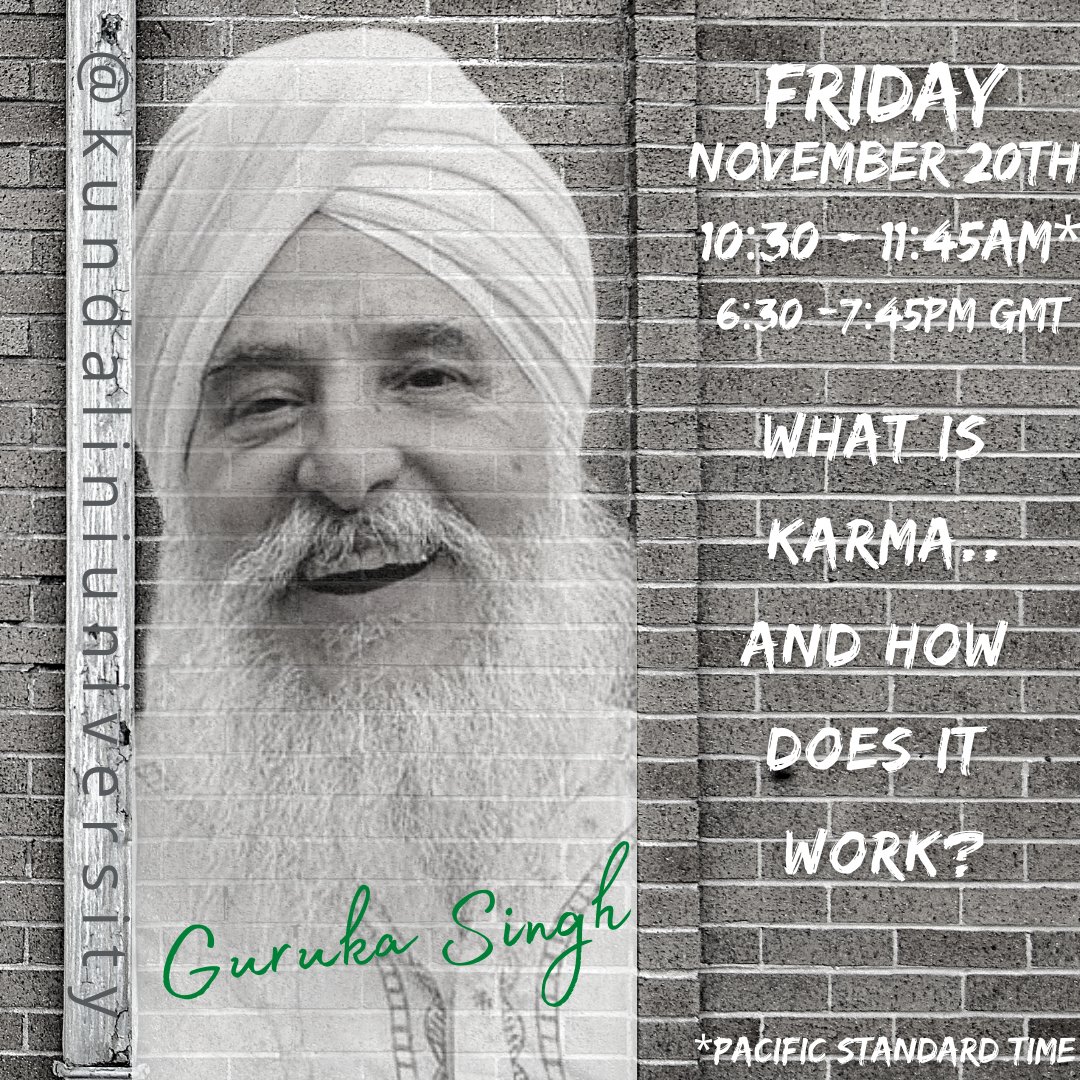 @kundaliniuniversity
FRIDAY
NOVEMBER 20TH
10:30 - 11:45AM*
6:30 -7:45PM GMT
WHAT IS
KARMA..
AND HOW
DOES IT
WORK?
Guruka Singh
*PACIFIC STANDARD TIME